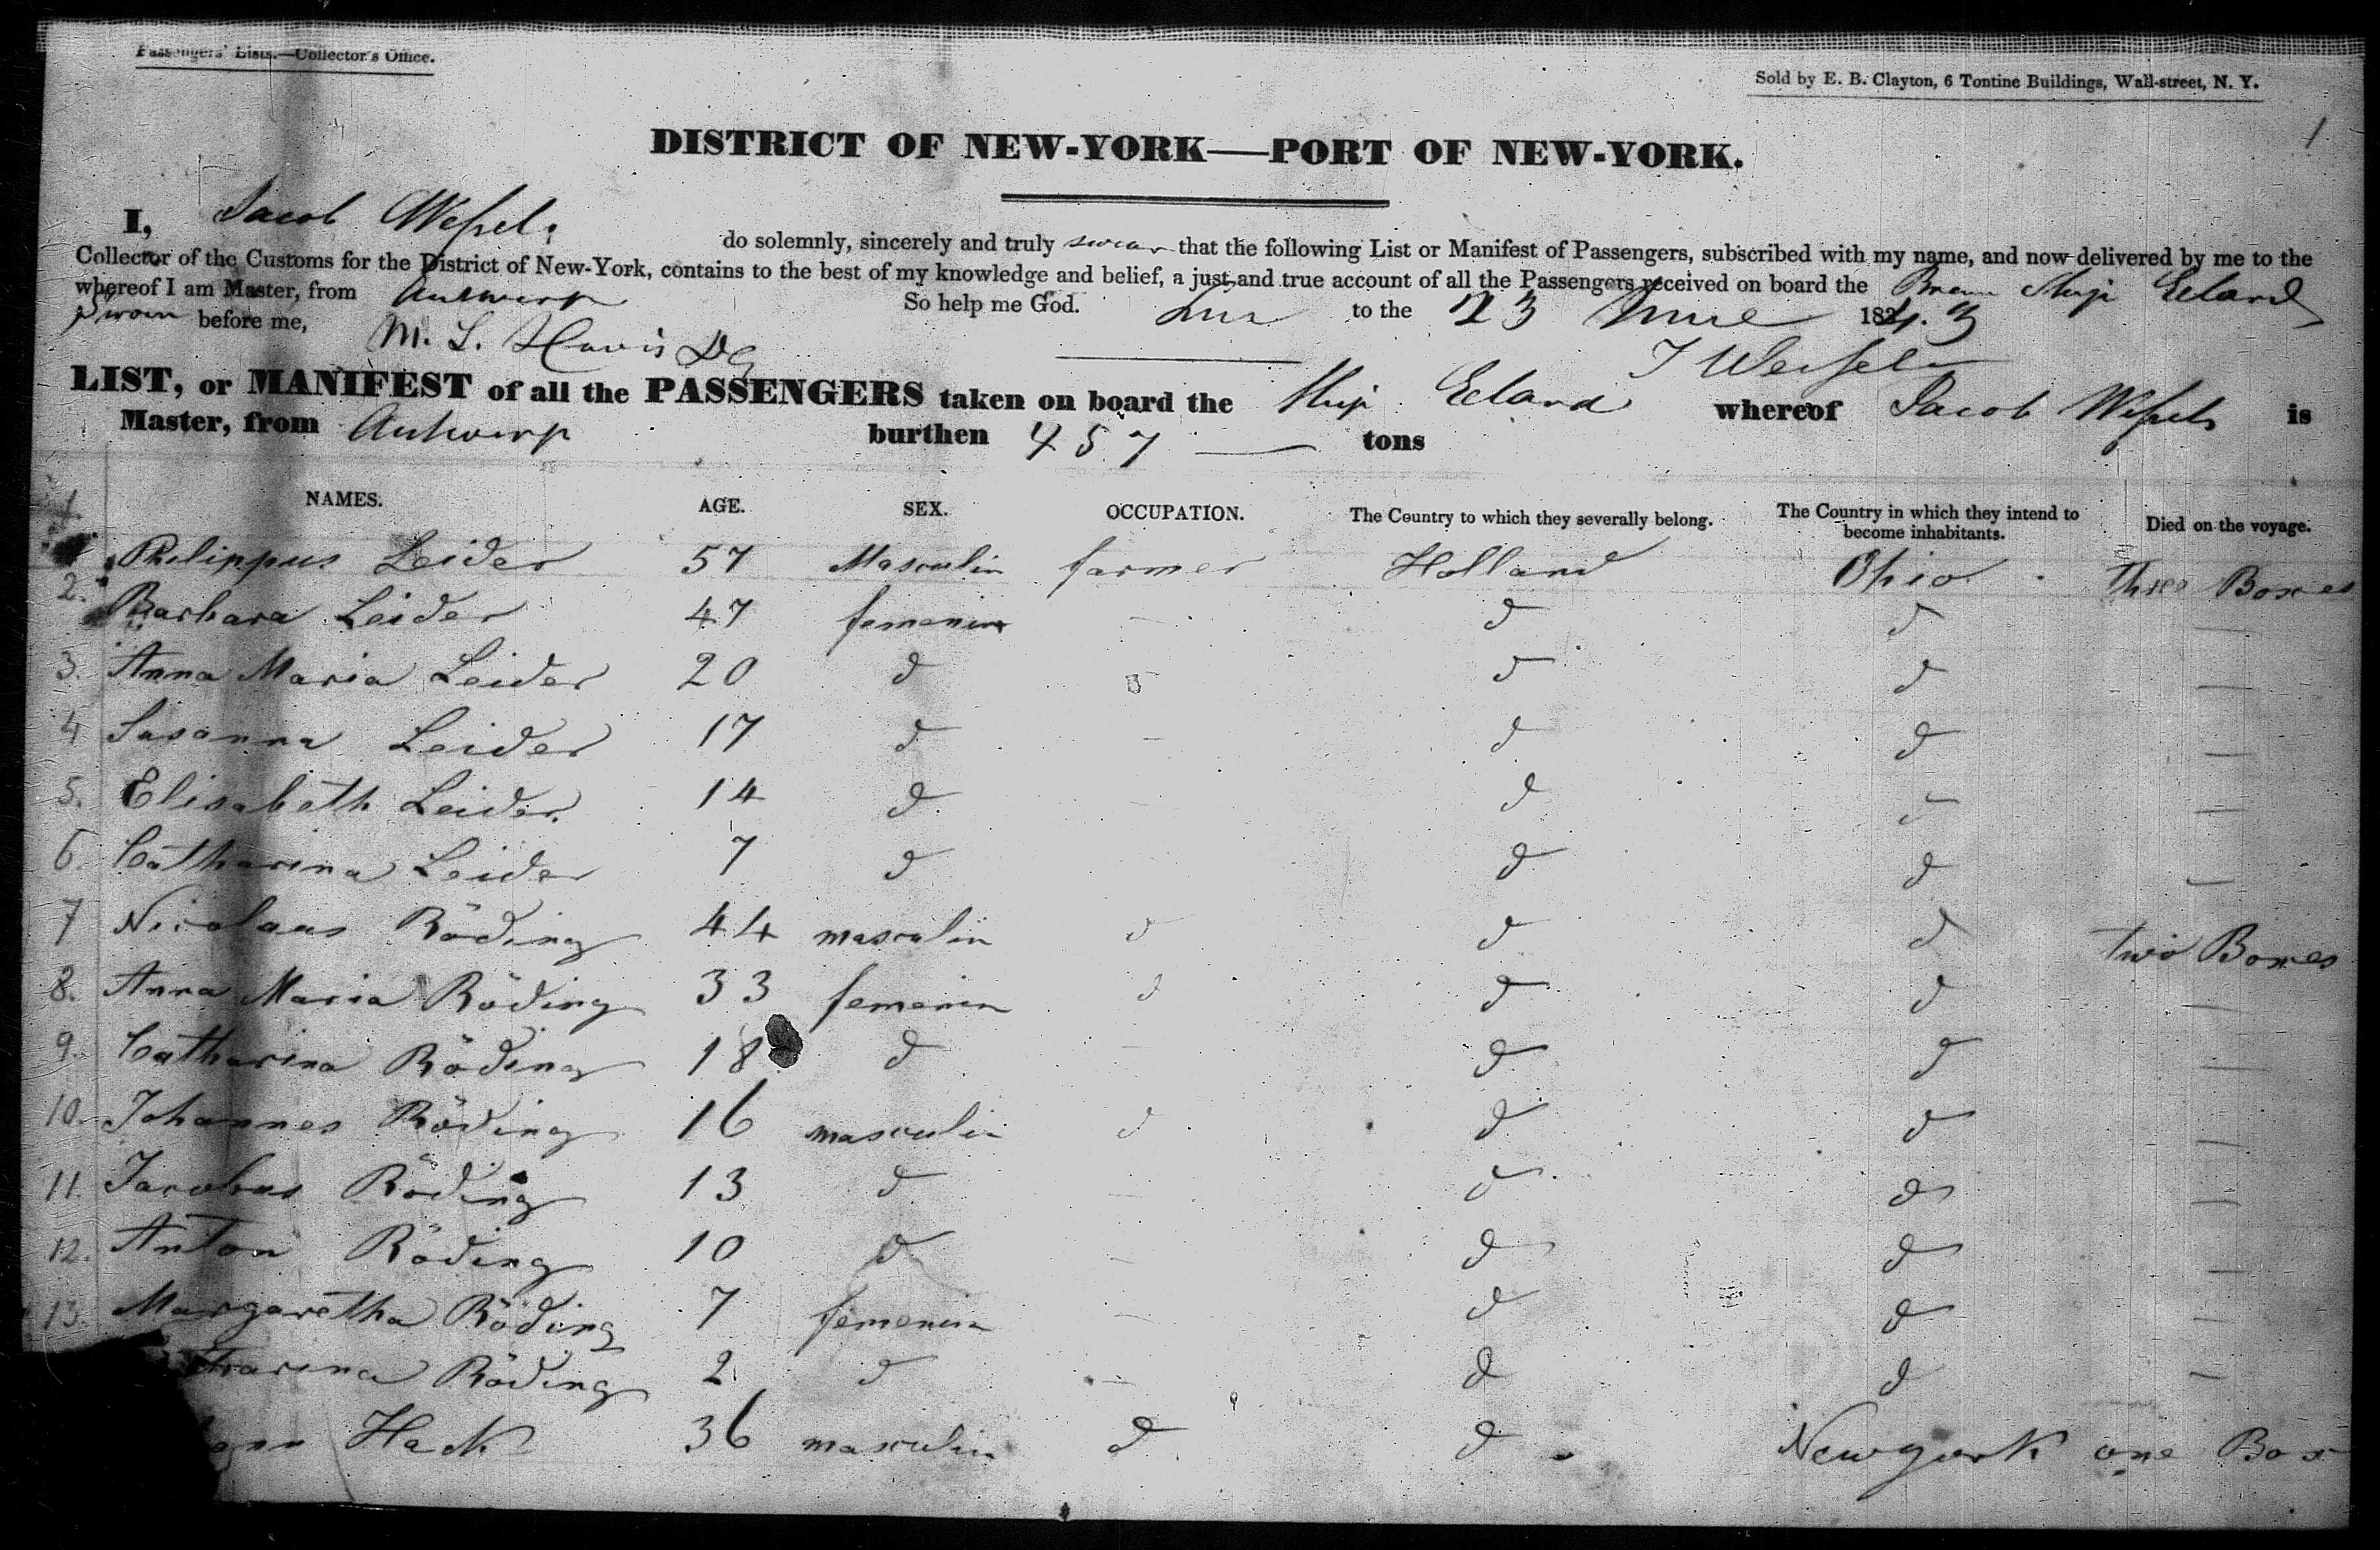 Passengers' Lists.—Collector's Office.
Sold by E. B. Clayton, 6 Tontine Buildings, Wall-street, N. Y.
1
DISTRICT OF NEW-YORK—PORT OF NEW-YORK.
I, Jacob Wessels do solemnly, sincerely and truly swear that the following List or Manifest of Passengers, subscribed with my name, and now delivered by me to the
Collector of the Customs for the District of New-York, contains to the best of my knowledge and belief, a just and true account of all the Passengers received on board the Brem Ship
whereof I am Master, from Antwerp
Sworn before me, So help me God. to the 23 June 1843
M. L. Davis J Wessels
LIST, or MANIFEST of all the PASSENGERS taken on board the Ship whereof Jacob Wessels is
Master, from Antwerp burthen 457 tons
NAMES. AGE. SEX. OCCUPATION. The Country to which they severally belong. The Country in which they intend to become inhabitants. Died on the voyage.
1 Philippus Leider 57 Masculin farmer Holland Ohio three Boxes
2. Barbara Leider 47 femenin — d d —
3. Anna Maria Leider 20 d d d —
4 Susanna Leider 17 d — d d —
5. Elisabeth Leider 14 d — d d —
6. Catharina Leider 7 d d d —
7 Nicolaus Röding 44 masculin d d d two Boxes
8. Anna Maria Röding 33 femenin d d d —
9. Catharina Röding 18 d — d d —
10. Johannes Röding 16 masculin d d d —
11. Jacobus Röding 13 d — d d —
12. Anton Röding 10 d — d d —
13. Margaretha Röding 7 femenin — d d —
tharina Röding 2 d — d d —
Hack 36 masculin d d Newyork one Box